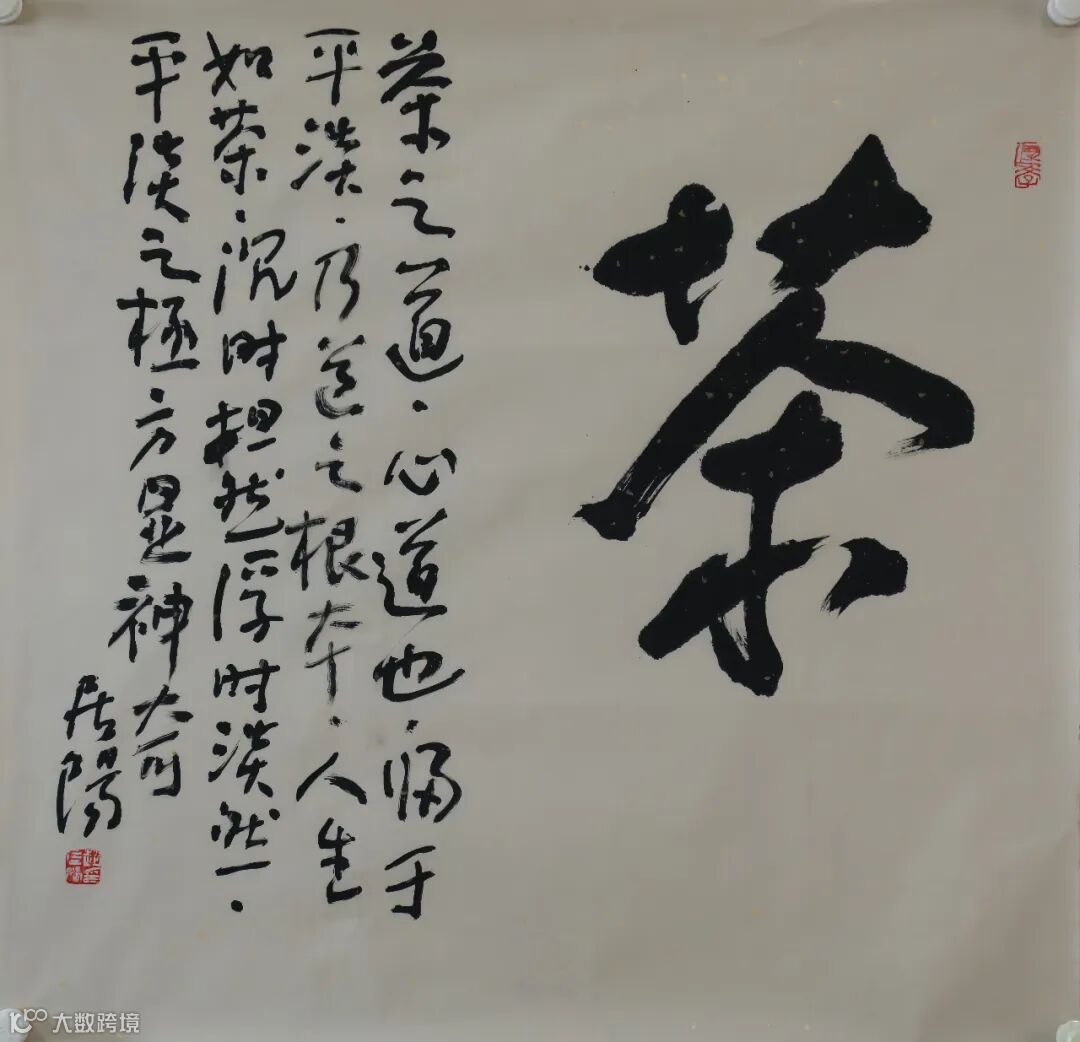 茶
茶之道·心道也·于
平淡·乃道之根本·人生
如茶·沉时坦然浮时淡然·
平淡之极方显神奇
居陽
大数跨境